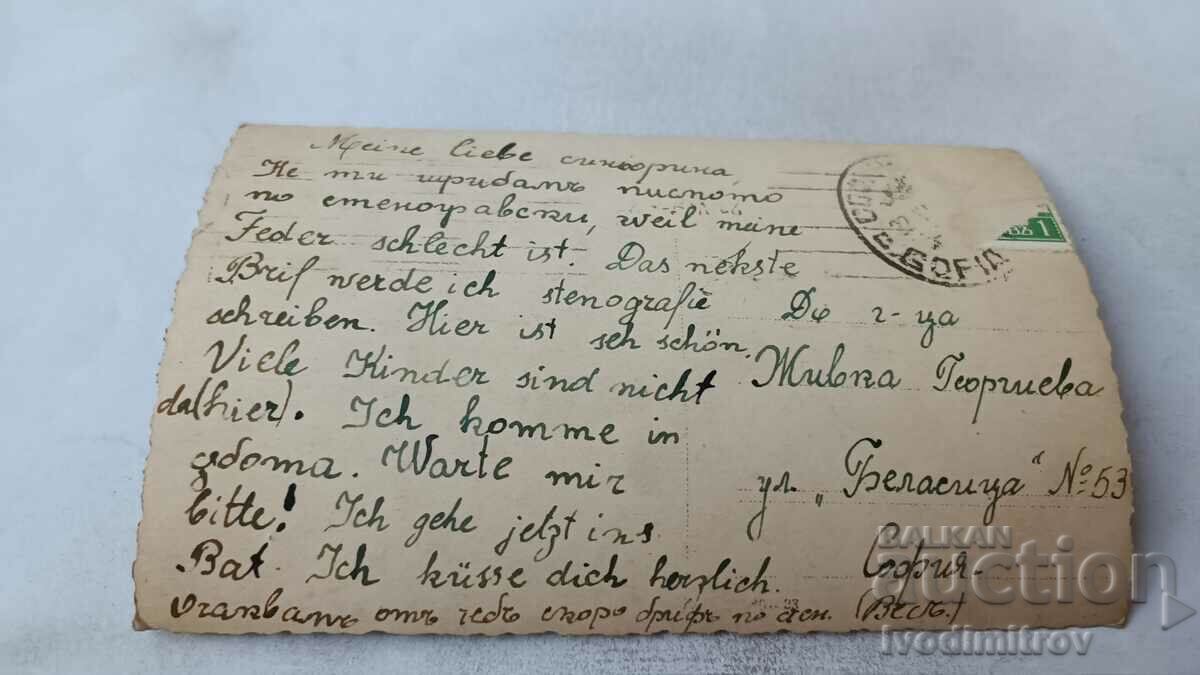 Meine liebe синьорина,
Не ти шрибамъ писмото
по стенографски, weil meine
Feder schlecht ist. Das nekste
Brif werde ich stenografie
schreiben. Hier ist seh schön.
Viele Kinder sind nicht
da(hier). Ich komme in
събота. Warte mir
bitte! Ich gehe jetzt ins
Bat. Ich küsse dich herzlich.
Очаквамъ отъ тебъ скоро брифъ по стен.
До г-ца
Живка Георгиева
ул. „Беласица" № 53
София
SOFIA
1
BALKAN
auction
ivodimitrov